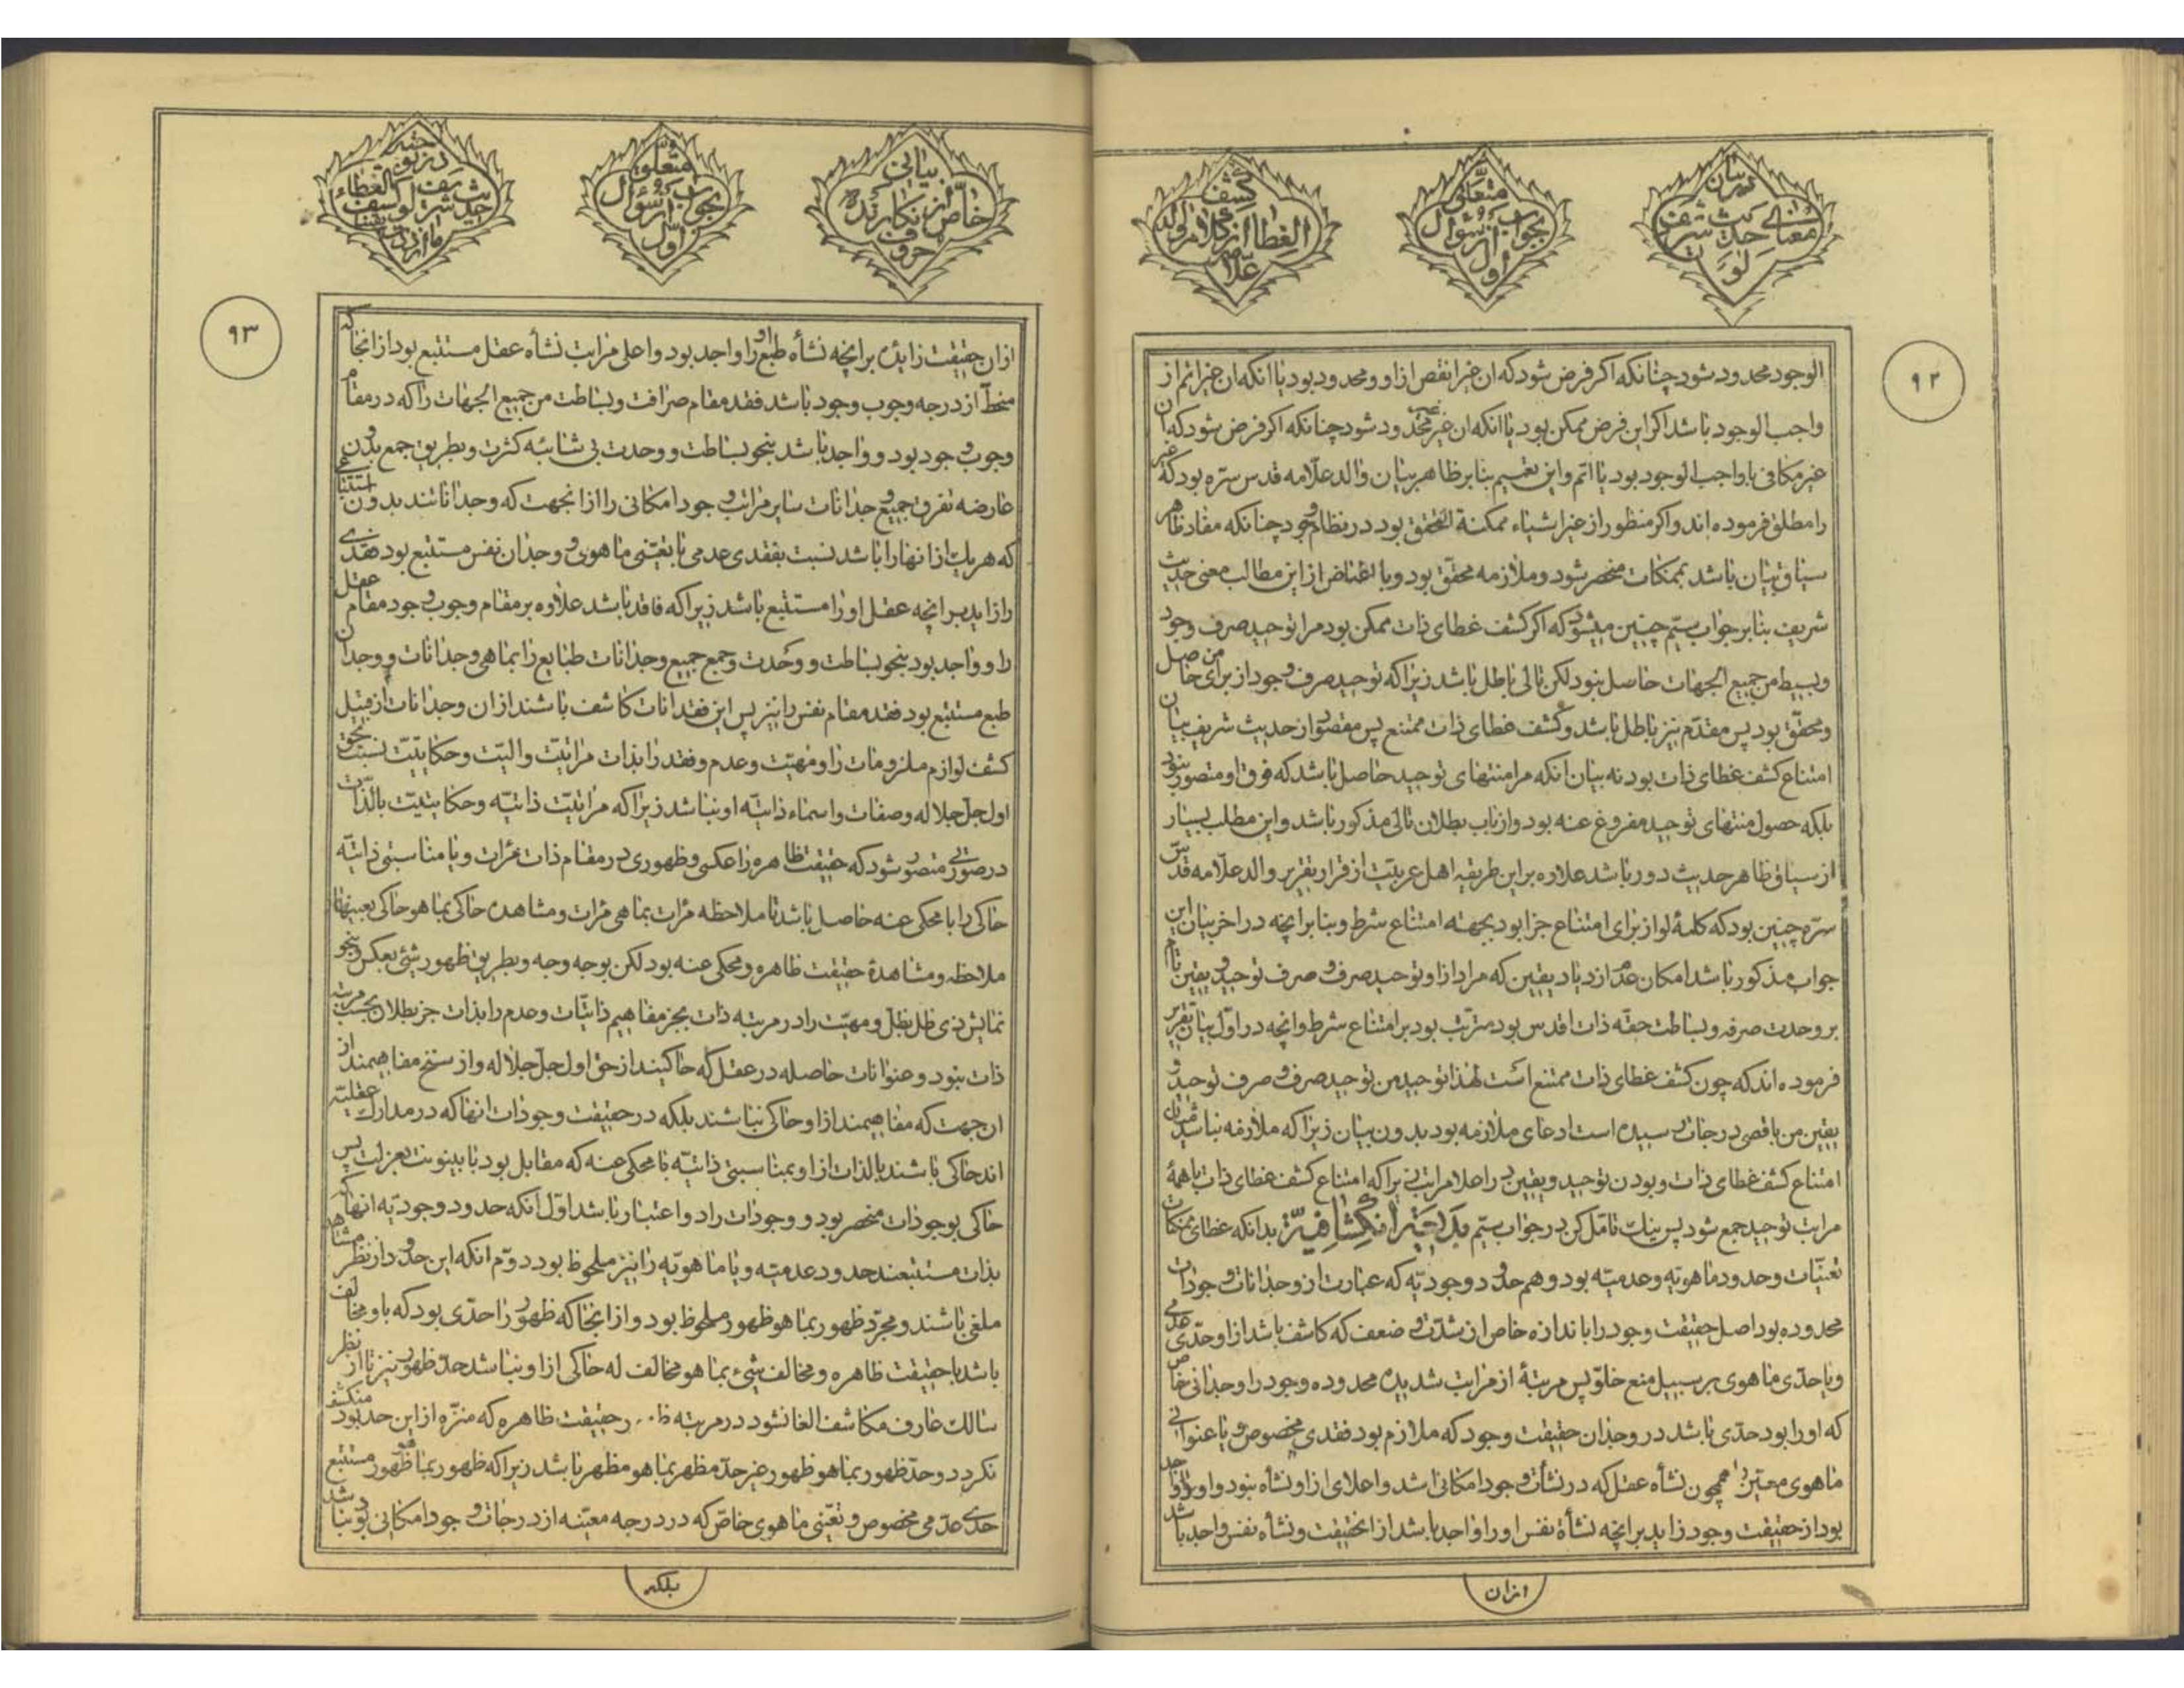 در بیان
معنای حدیث شریف
لو
متعلق
بجواب از سؤال
اول
کشف
الغطا از کلام والد
علام
۹۲
الوجود محدود شود چنانکه اکر فرض شود که ان غیر انقص از او و محدود بود یا انکه ان غیر اتم از
واجب الوجود باشد اکر این فرض ممکن بود یا انکه ان غیر غیر محدود شود چنانکه اکر فرض شود که ان
غیر مکافی با واجب الوجود بود یا اتم و این تعمیم بنا بر ظاهر بیان والد علامه قدس سره بود که غیر
را مطلق فرموده اند و اکر منظور از غیر اشیاء ممکنة التحقق بود در نظام وجود چنانکه مفاد ظاهر
سیاق بیان باشد بممکنات منحصر شود و ملازمه محقق بود و با اغماض از این مطالب معنی حدیث
شریف بنا بر جواب ستیم چنین میشود که اکر کشف غطای ذات ممکن بود مرا توحید صرف وجود
و بسیط من جمیع الجهات حاصل نبود لکن تالی باطل باشد زیرا که توحید صرف وجود از برای من حاصل
و محقق بود پس مقدم نیز باطل باشد و کشف غطای ذات ممتنع پس مقصود از حدیث شریف بیان
امتناع کشف غطای ذات بود نه بیان انکه مرا منتهای توحید حاصل باشد که فوق او متصور نبود
بلکه حصول منتهای توحید مفروغ عنه بود و از باب بطلان تالی مذکور باشد و این مطلب بسیار
از سیاق ظاهر حدیث دور باشد علاوه بر این طریقه اهل عربیت از قرار تقریر والد علامه قدس
سره چنین بود که کلمهٔ لو از برای امتناع جزا بود بجهته امتناع شرط و بنا بر انچه در اخر بیان این
جواب مذکور باشد امکان عدم ازدیاد یقین که مراد از او توحید صرف و صرف توحید و یقین تام
بر وحدت صرفه و بساطت حقه ذات اقدس بود مترتب بود بر امتناع شرط و انچه در اول بیان تقریر
فرموده اند که چون کشف غطای ذات ممتنع است لهذا توحید من توحید صرف و صرف توحید و
یقین من باقصی درجات رسیده است ادعای ملازمه بود بدون بیان زیرا که ملازمه نباشد میان
امتناع کشف غطای ذات و بودن توحید و یقین در اعلا مراتب زیرا که امتناع کشف غطای ذات با همهٔ
مراتب توحید جمع شود پس نیک تامل کن در جواب ستیم بدانکه غطای ممکنات
تعینات و حدود ماهویه و عدمیه بود و هم حدود وجودیه که عبارت از وجدانات وجودات
محدوده بود اصل حقیقت وجود را باندازه خاص از شدت و ضعف که کاشف باشد از او حدی عدمی
و یا حدی ماهوی بر سبیل منع خلو پس مرتبهٔ از مراتب شدیده محدوده وجود را وجدانی خاص
که او را بود حدی باشد در وجدان حقیقت وجود که ملازم بود فقدی مخصوص و یا عنوانی
ماهوی معین را همچون نشاه عقل که در نشأت وجود امکانی اشد و اعلای از او نشاه نبود و او واجد
بود از حقیقت وجود زاید بر انچه نشأة نفس او را واجد باشد از انحقیقت و نشأه نفس واجد باشد
ازان
بیانی
خاص از نکارنده
حروف
متعلق
بجواب از سؤال
اول
حدیث شریف لو کشف الغطاء
ما ازددت یقینا
۹۳
ازان حقیقت زاید بر انچه نشأه طبع او را واجد بود و اعلی مراتب نشأه عقل مستتبع بود از انجا که
منحط از درجه وجوب وجود باشد فقد مقام صرافت و بساطت من جمیع الجهات را که در مقام
وجوب وجود بود و واجد باشد بنحو بساطت و وحدت بی شائبه کثرت و بطریق جمع بدون
عارضه تفرق جمیع وجدانات سایر مراتب وجود امکانی را از انجهت که وجدانند بدون استثنا
که هر یک از انها را باشد نسبت بفقدی عدمی یا بتعینی ماهوی و وجدان نفس مستتبع بود فقدی
را زاید بر انچه عقل او را مستتبع باشد زیرا که فاقد باشد علاوه بر مقام وجوب وجود مقام عقل
را و واجد بود بنحو بساطت و وحدت و جمع جمیع وجدانات طبایع را بما هی وجدانات و وجدان
طبع مستتبع بود فقد مقام نفس را نیز پس این فقدانات کاشف باشند از ان وجدانات از قبیل
کشف لوازم ملزومات را و مهیت و عدم و فقد را بذات مراتیت و الیت و حکایتیت نسبت بحق
اول جل جلاله و صفات و اسماء ذاتیه او نباشد زیرا که مراتیت ذاتیه و حکایتیت بالذات
در صورتی متصور شود که حقیقت ظاهره را عکسی و ظهوری در مقام ذات مرات و یا مناسبتی ذاتیه
حاکی را با محکی عنه حاصل باشد تا ملاحظه مرات بما هی مرات و مشاهده حاکی بما هو حاکی بعینها
ملاحظه و مشاهدهٔ حقیقت ظاهره و محکی عنه بود لکن بوجه وجه و بطریق ظهور شیئ بعکس و بنحو
نمایش ذی ظل بظل و مهیت را در مرتبه ذات بجز مفاهیم ذاتیات و عدم را بذات جز بطلان بحسب مرتبه
ذات نبود و عنوانات حاصله در عقل که حاکیند از حق اول جل جلاله و از سنخ مفاهیمند از
ان جهت که مفاهیمند از او حاکی نباشند بلکه در حقیقت وجودات انها که در مدارک عقلیه
اند حاکی باشند بالذات از او بمناسبتی ذاتیه با محکی عنه که مقابل بود با بینونت بعزلت پس
حاکی بوجودات منحصر بود و وجودات را دو اعتبار باشد اول انکه حدود وجودیه انها که
بذات مستتبعند حدود عدمیه و یا ماهویه را نیز ملحوظ بود دوم انکه این حدود از نظر مشاهد
ملغی باشند و مجرد ظهور بما هو ظهور ملحوظ بود و از انجا که ظهور را حدی بود که با و مخالف
باشد با حقیقت ظاهره و مخالف شیء بما هو مخالف له حاکی از او نباشد حد ظهور نیز تا از نظر
سالک عارف مکاشف الغا نشود در مرتبه حقیقت ظاهره که منزه از این حد بود منکشف
نکردد و حد ظهور بما هو ظهور غیر حد مظهر بما هو مظهر باشد زیرا که ظهور بما هو ظهور مستتبع
حدی عدمی مخصوص و تعینی ماهوی خاص که در درجه معینه از درجات وجود امکانی بود نباشد
بلکه